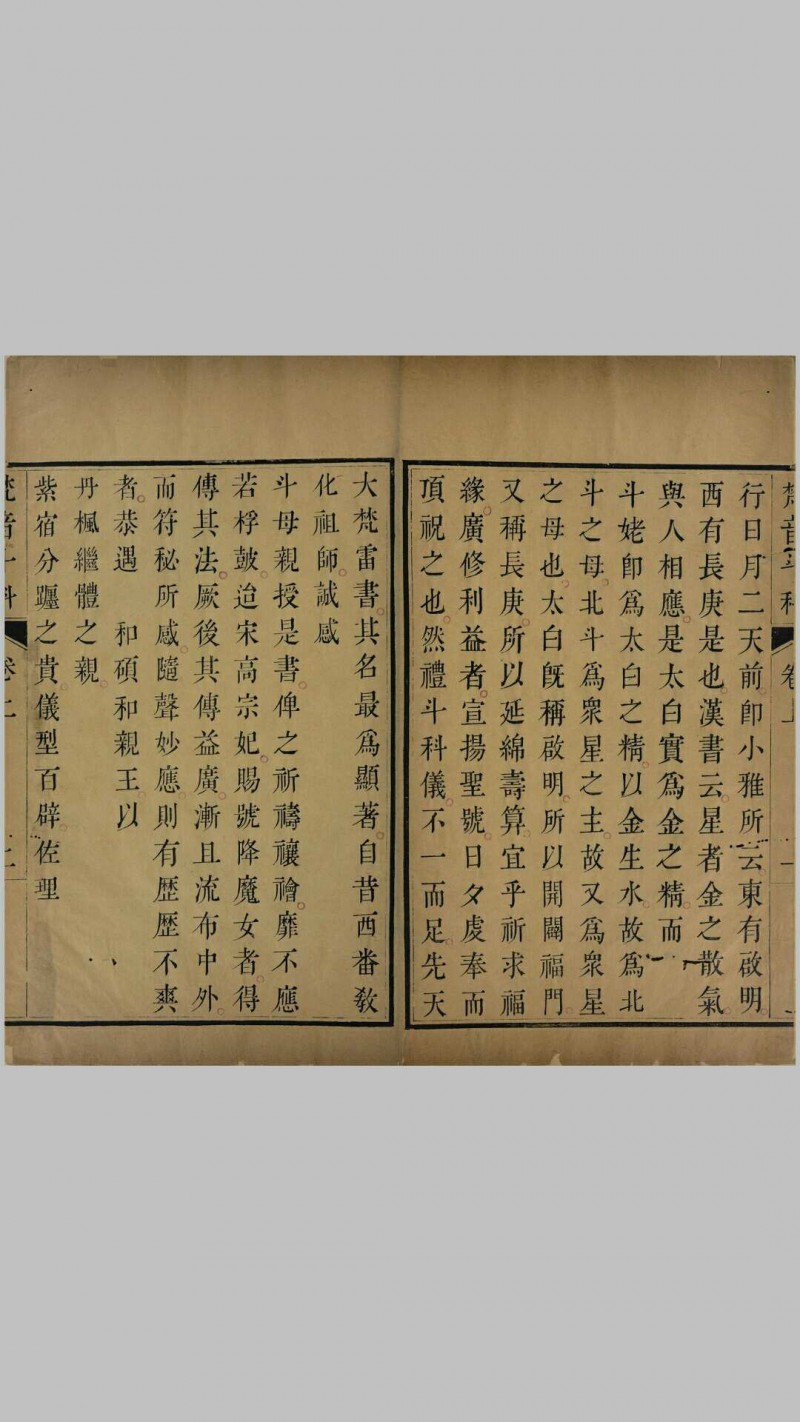 梵音斗科 卷上
行日月二天前即小雅所云東有啟明
西有長庚是也漢書云星者金之散氣
與人相應是太白實爲金之精而
斗姥卽爲太白之精以金生水故爲北
斗之母北斗爲衆星之主故又爲衆星
之母也太白旣稱啟明所以開闢福門
又稱長庚所以延綿壽算宜乎祈求福
緣廣修利益者宣揚聖號日夕虔奉而
頂祝之也然禮斗科儀不一而足先天
大梵雷書其名最爲顯著自昔西番敎
化祖師誠感
斗母親授是書俾之祈禱禳禬靡不應
若桴鼓迨宋高宗妃賜號降魔女者得
傳其法厥後其傳益廣漸且流布中外
而符秘所感隨聲妙應則有歷歷不爽
者恭遇 和碩和親王以
丹楓繼體之親
紫宿分躔之貴儀型百辟佐理